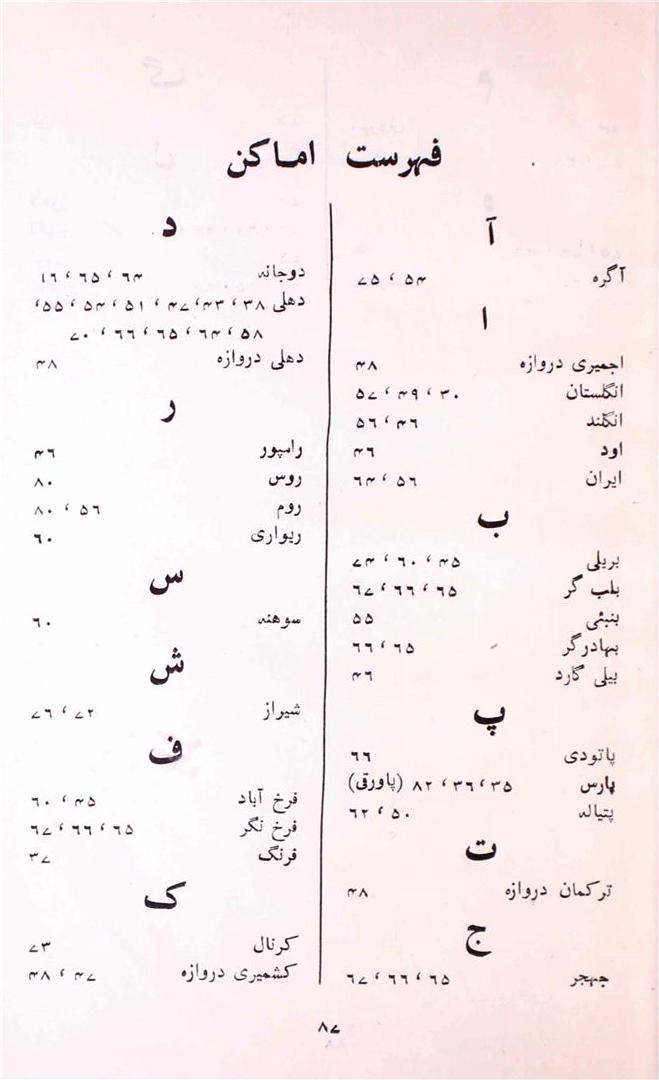 فہرست اماکن
آ
آگرہ ۵۴، ۷۵
ا
اجمیری دروازہ ۴۸
انگلستان ۳۰، ۴۹، ۵۷
انگلند ۴۶، ۵۶
اود ۴۶
ایران ۵۶، ۶۴
ب
بریلی ۴۵، ۶۰، ۷۴
بلب گر ۶۵، ۶۶، ۶۷
بنبئی ۵۵
بہادرگر ۶۵، ۶۶
بیلی گارد ۴۶
پ
پاتودی ۶۶
پارس ۳۵، ۳۶، ۸۲ (پاورقی)
پتیالہ ۵۰، ۶۲
ت
ترکمان دروازہ ۴۸
ج
جہجر ۶۵، ۶۶، ۶۷
د
دوجانہ ۶۴، ۶۵، ۱۶
دھلی ۳۸، ۴۳، ۴۷، ۵۱، ۵۴، ۵۵،
۵۸، ۶۴، ۶۵، ۶۶، ۷۰
دھلی دروازہ ۴۸
ر
رامپور ۴۶
روس ۸۰
روم ۵۶، ۸۰
ریواری ۶۰
س
سوھنہ ۶۰
ش
شیراز ۷۲، ۷۶
ف
فرخ آباد ۴۵، ۶۰
فرخ نگر ۶۵، ۶۶، ۶۷
فرنگ ۳۷
ک
کرنال ۷۳
کشمیری دروازہ ۴۷، ۴۸
۸۷